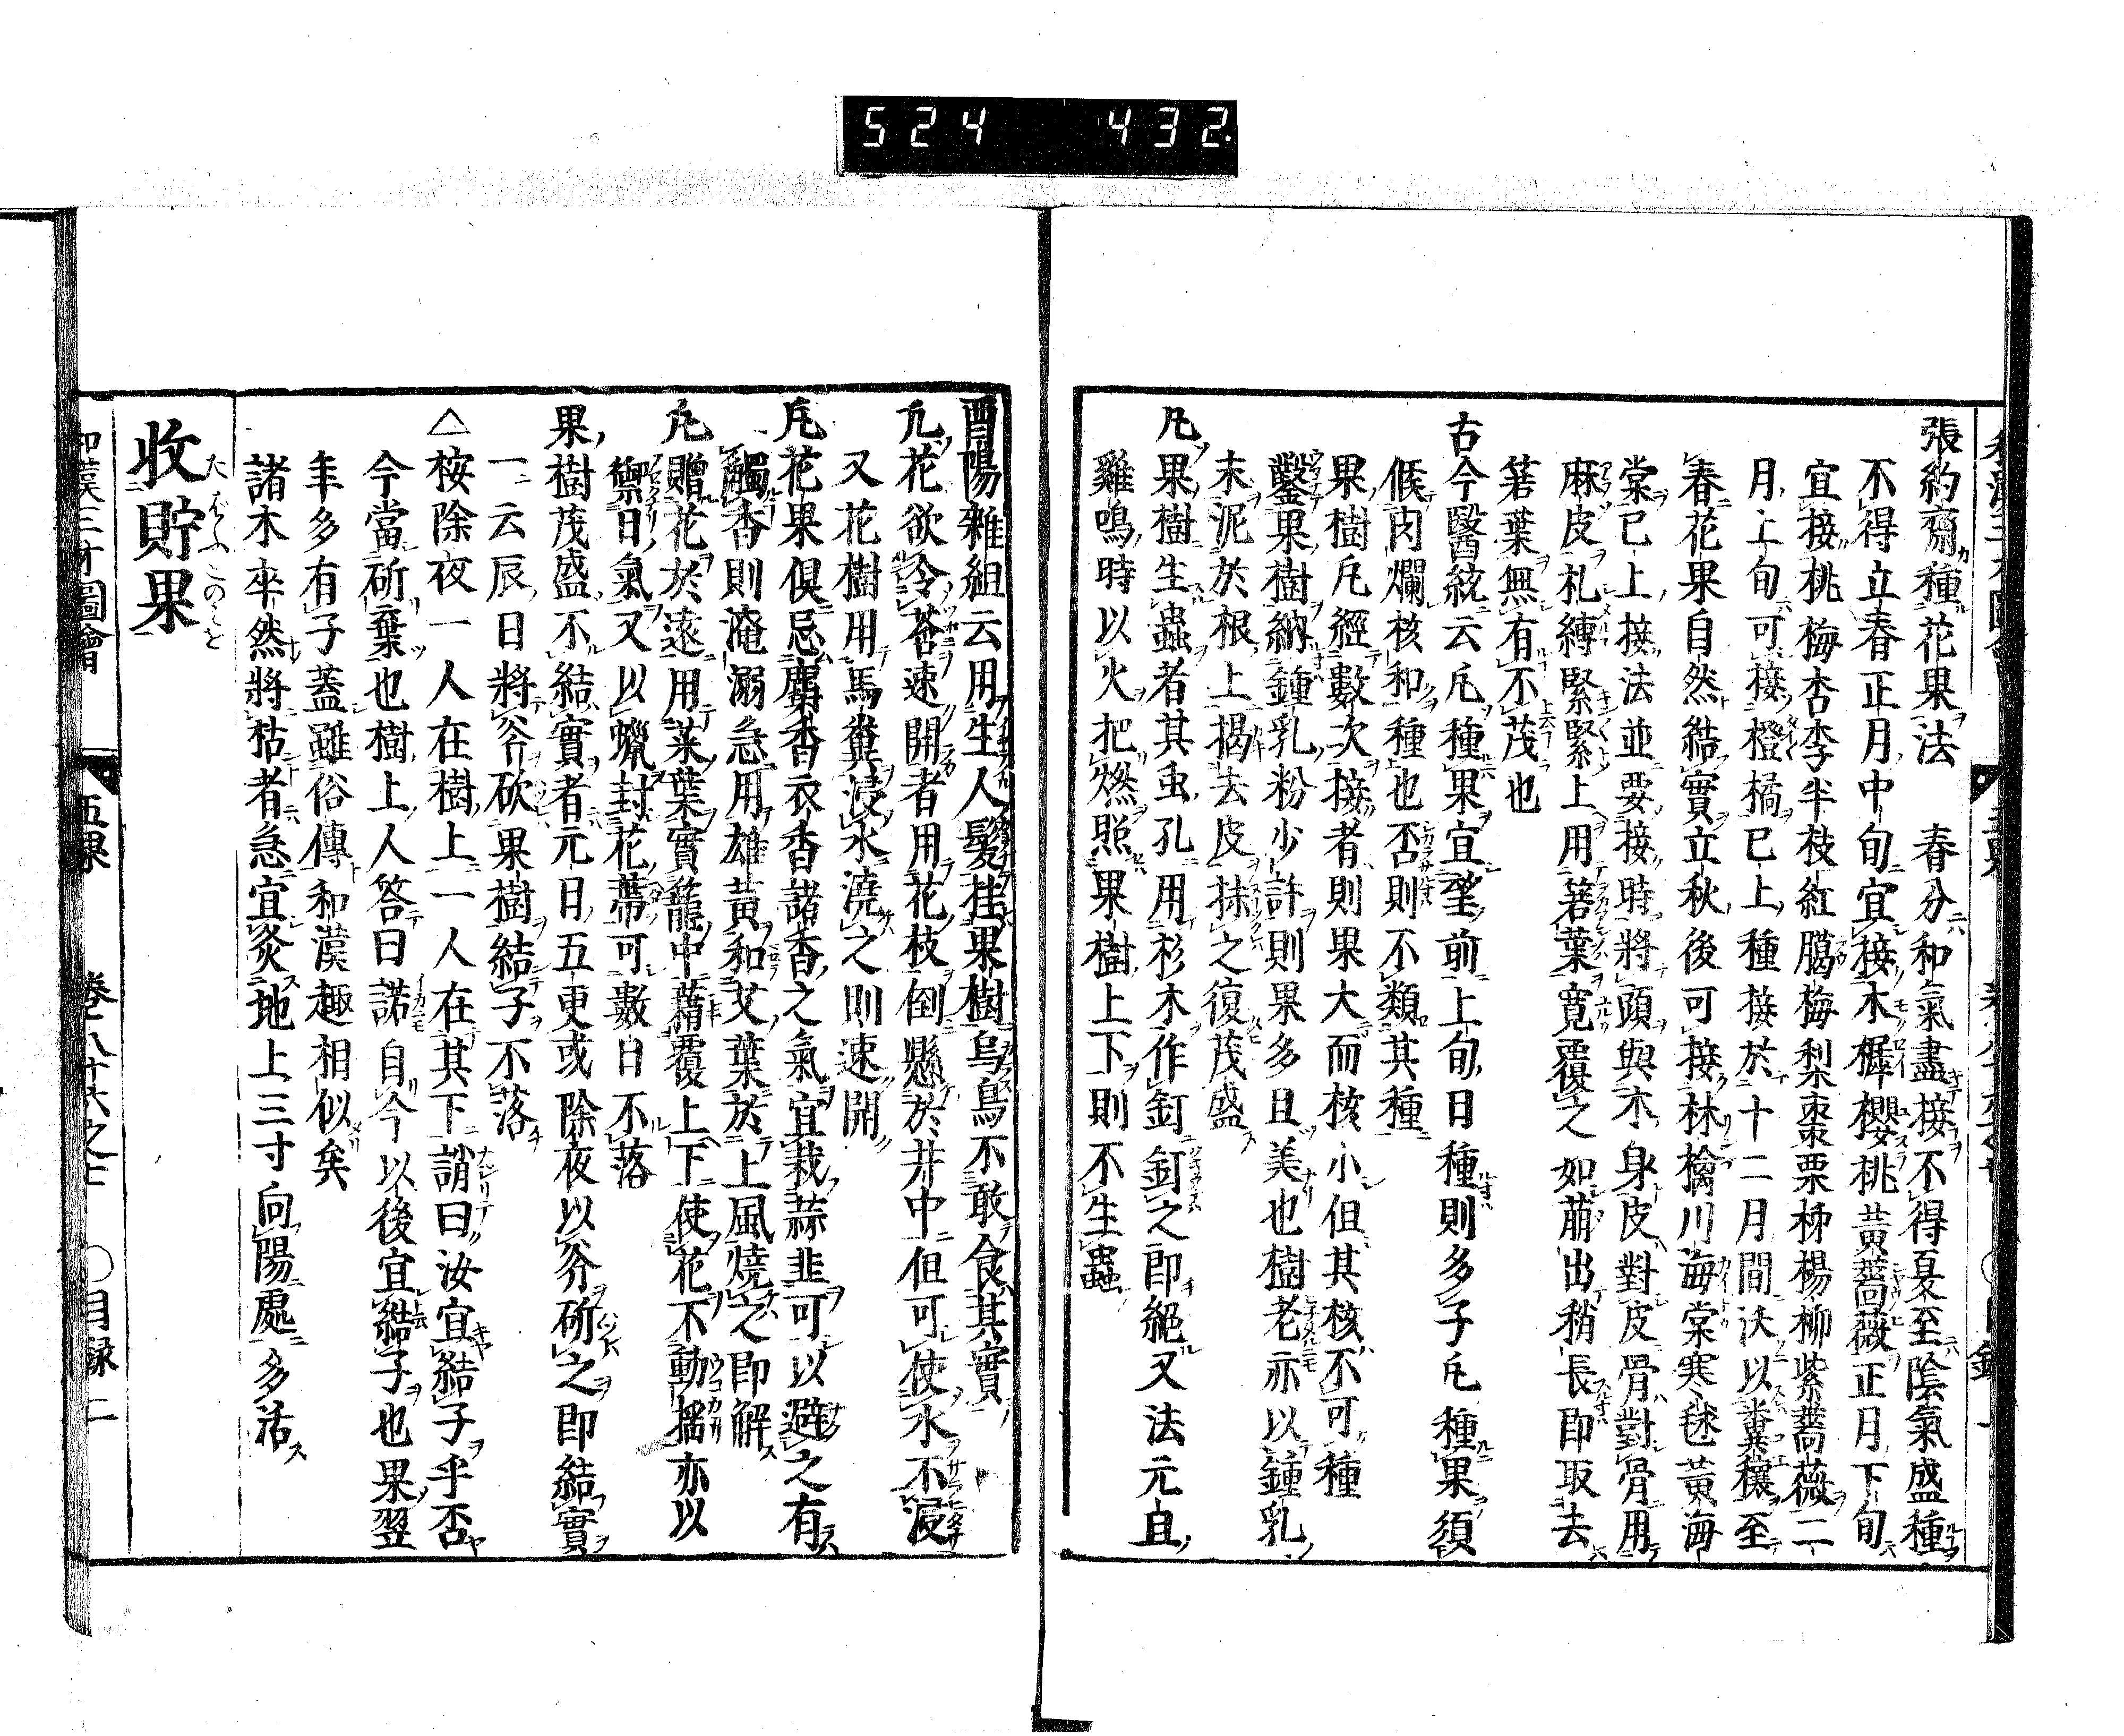 524 432
張約齋種花果法 春分和氣盡接不得夏至陰氣盛種
不得立春正月中旬宜接木樨櫻桃黃薔薇正月下旬
宜接桃梅杏李半枝紅臈梅梨棗栗柹楊柳紫薔薇二
月上旬可接橙橘已上種接於十二月間沃以糞穰至
春花果自然結實立秋後可接林檎川海棠寒毬黃海
棠已上接法並要接時將頭與木身皮對皮骨對骨用
麻皮札縛緊緊上用箬葉寬覆之如萠出稍長即取去
箬葉無有不茂也
古今醫統云凡種果宜望前上旬日種則多子凡種果須
候肉爛核和種也否則不類其種
果樹凡經數次接者則果大而核小但其核不可種
鑿果樹納鍾乳粉少許則果多且美也樹老亦以鍾乳
末泥於根上揭去皮抹之復茂盛
凡果樹生蟲者其虫孔用杉木作釘釘之即絕又法元旦
雞鳴時以火把燃照果樹上下則不生蟲
酉陽雜組云用生人髮挂果樹烏鳥不敢食其實
凡花欲令莟速開者用花枝倒懸於井中但可使水不浸
又花樹用馬糞浸水澆之則速開
凡花果俱忌麝香衣香諸香之氣宜栽蒜韭可以避之有
觸香則淹溺急用雄黃和艾葉於上風燒之即解
凡贈花於遠用菜葉實籠中藉覆上下使花不動搖亦以
禦日氣又以蠟封花蔕可數日不落
果樹茂盛不結實者元日五更或除夜以斧斫之即結實
一云辰日將斧砍果樹結子不落
△桉除夜一人在樹上一人在其下誚曰汝宜結子乎否
今當斫棄也樹上人答曰諾自今以後宜結子也果翌
年多有子蓋雖俗傳和漢趣相似矣
諸木卒然將枯者急宜灸地上三寸向陽處多活
收貯果 たくはふこのみを
和漢三才圖會 五果 卷八十六之七 ○目録 二